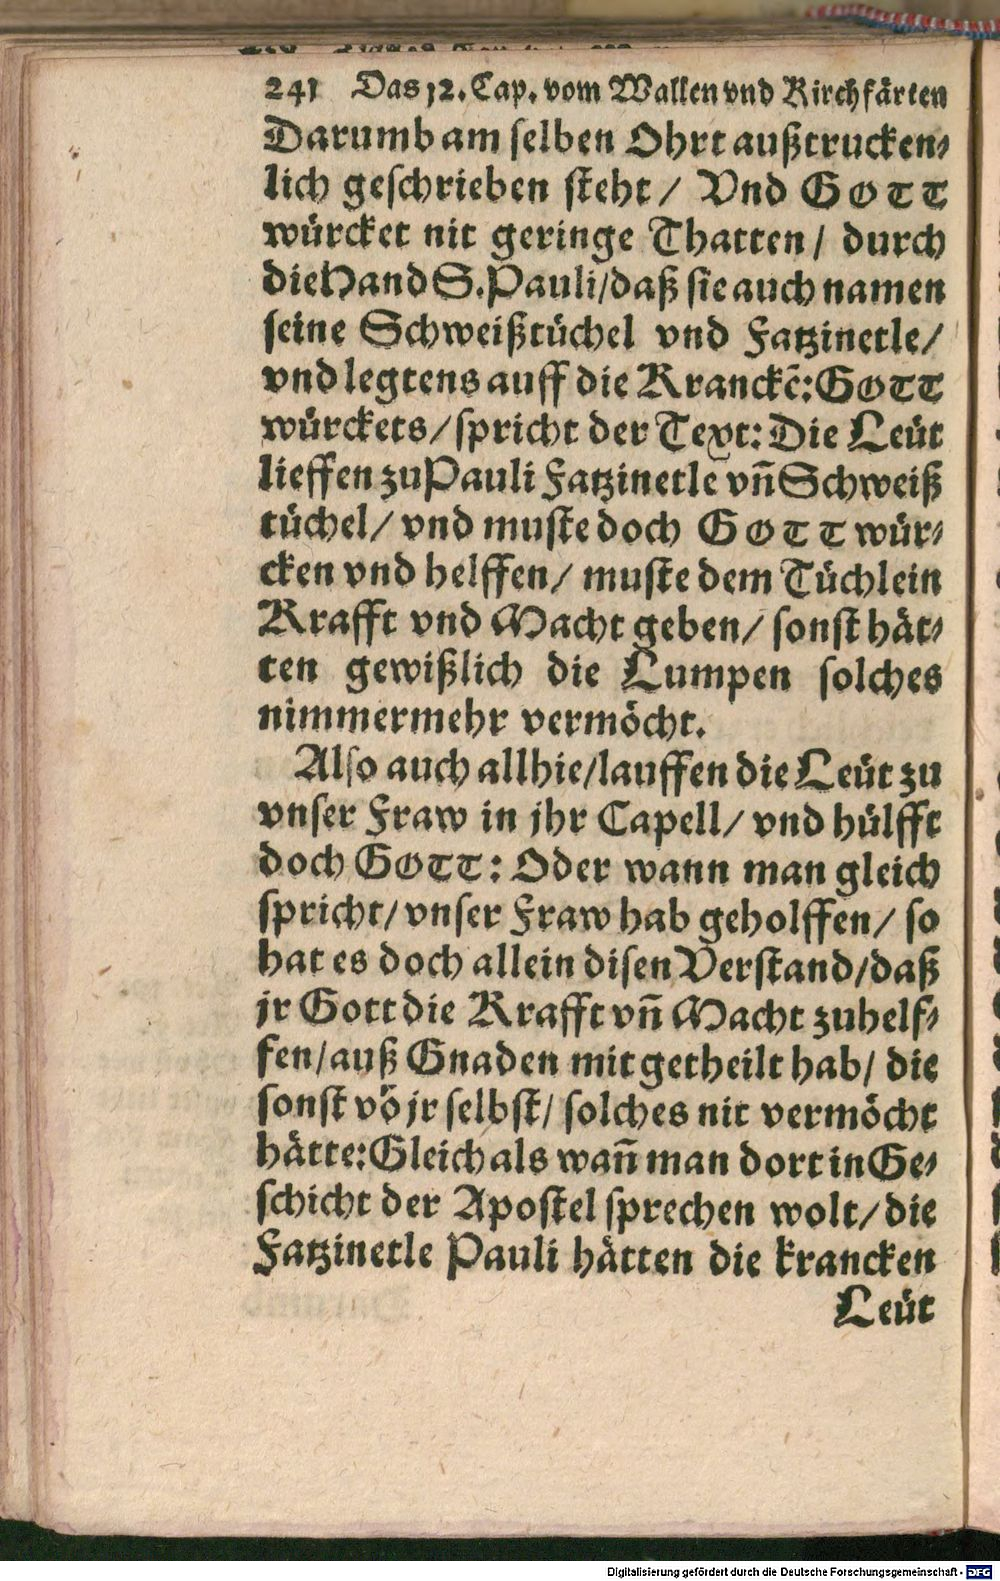 241 Das 12. Cap. vom Wallen vnd Kirchfärten
Darumb am selben Ohrt außtrucken⸗
lich geschrieben steht / Vnd GOTT
würcket nit geringe Thatten / durch
die Hand S. Pauli / daß sie auch namen
seine Schweißtüchel vnd Fatzinetle /
vnd legtens auff die Kranckē: GOTT
würckets / spricht der Text: Die Leüt
lieffen zu Pauli Fatzinetle vñ Schweiß
tüchel / vnd muste doch GOTT wür⸗
cken vnd helffen / muste dem Tüchlein
Krafft vnd Macht geben / sonst hät⸗
ten gewißlich die Lumpen solches
nimmermehr vermöcht.
Also auch allhie / lauffen die Leüt zu
vnser Fraw in jhr Capell / vnd hülfft
doch GOTT: Oder wann man gleich
spricht / vnser Fraw hab geholffen / so
hat es doch allein disen Verstand / daß
jr Gott die Krafft vñ Macht zuhelf⸗
fen / auß Gnaden mit getheilt hab / die
sonst vō jr selbst / solches nit vermöcht
hätte: Gleich als wañ man dort in Ge⸗
schicht der Apostel sprechen wolt / die
Fatzinetle Pauli hätten die krancken
Leüt
Digitalisierung gefördert durch die Deutsche Forschungsgemeinschaft - DFG